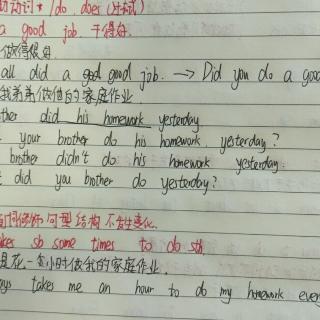 助动词 + /do does (时态)
a good job. 干得好.
做得很好.
all did a good job. → Did you do a good
我弟弟做他的家庭作业.
ther did his homework yesterday
your brother do his homework yesterday?
brother didn't do his homework yesterday.
did you brother do yesterday?
句型结构 不发生变化.
akes sb some times to do sth.
是花一个小时做我的家庭作业.
ays takes me an hour to do my homework ever